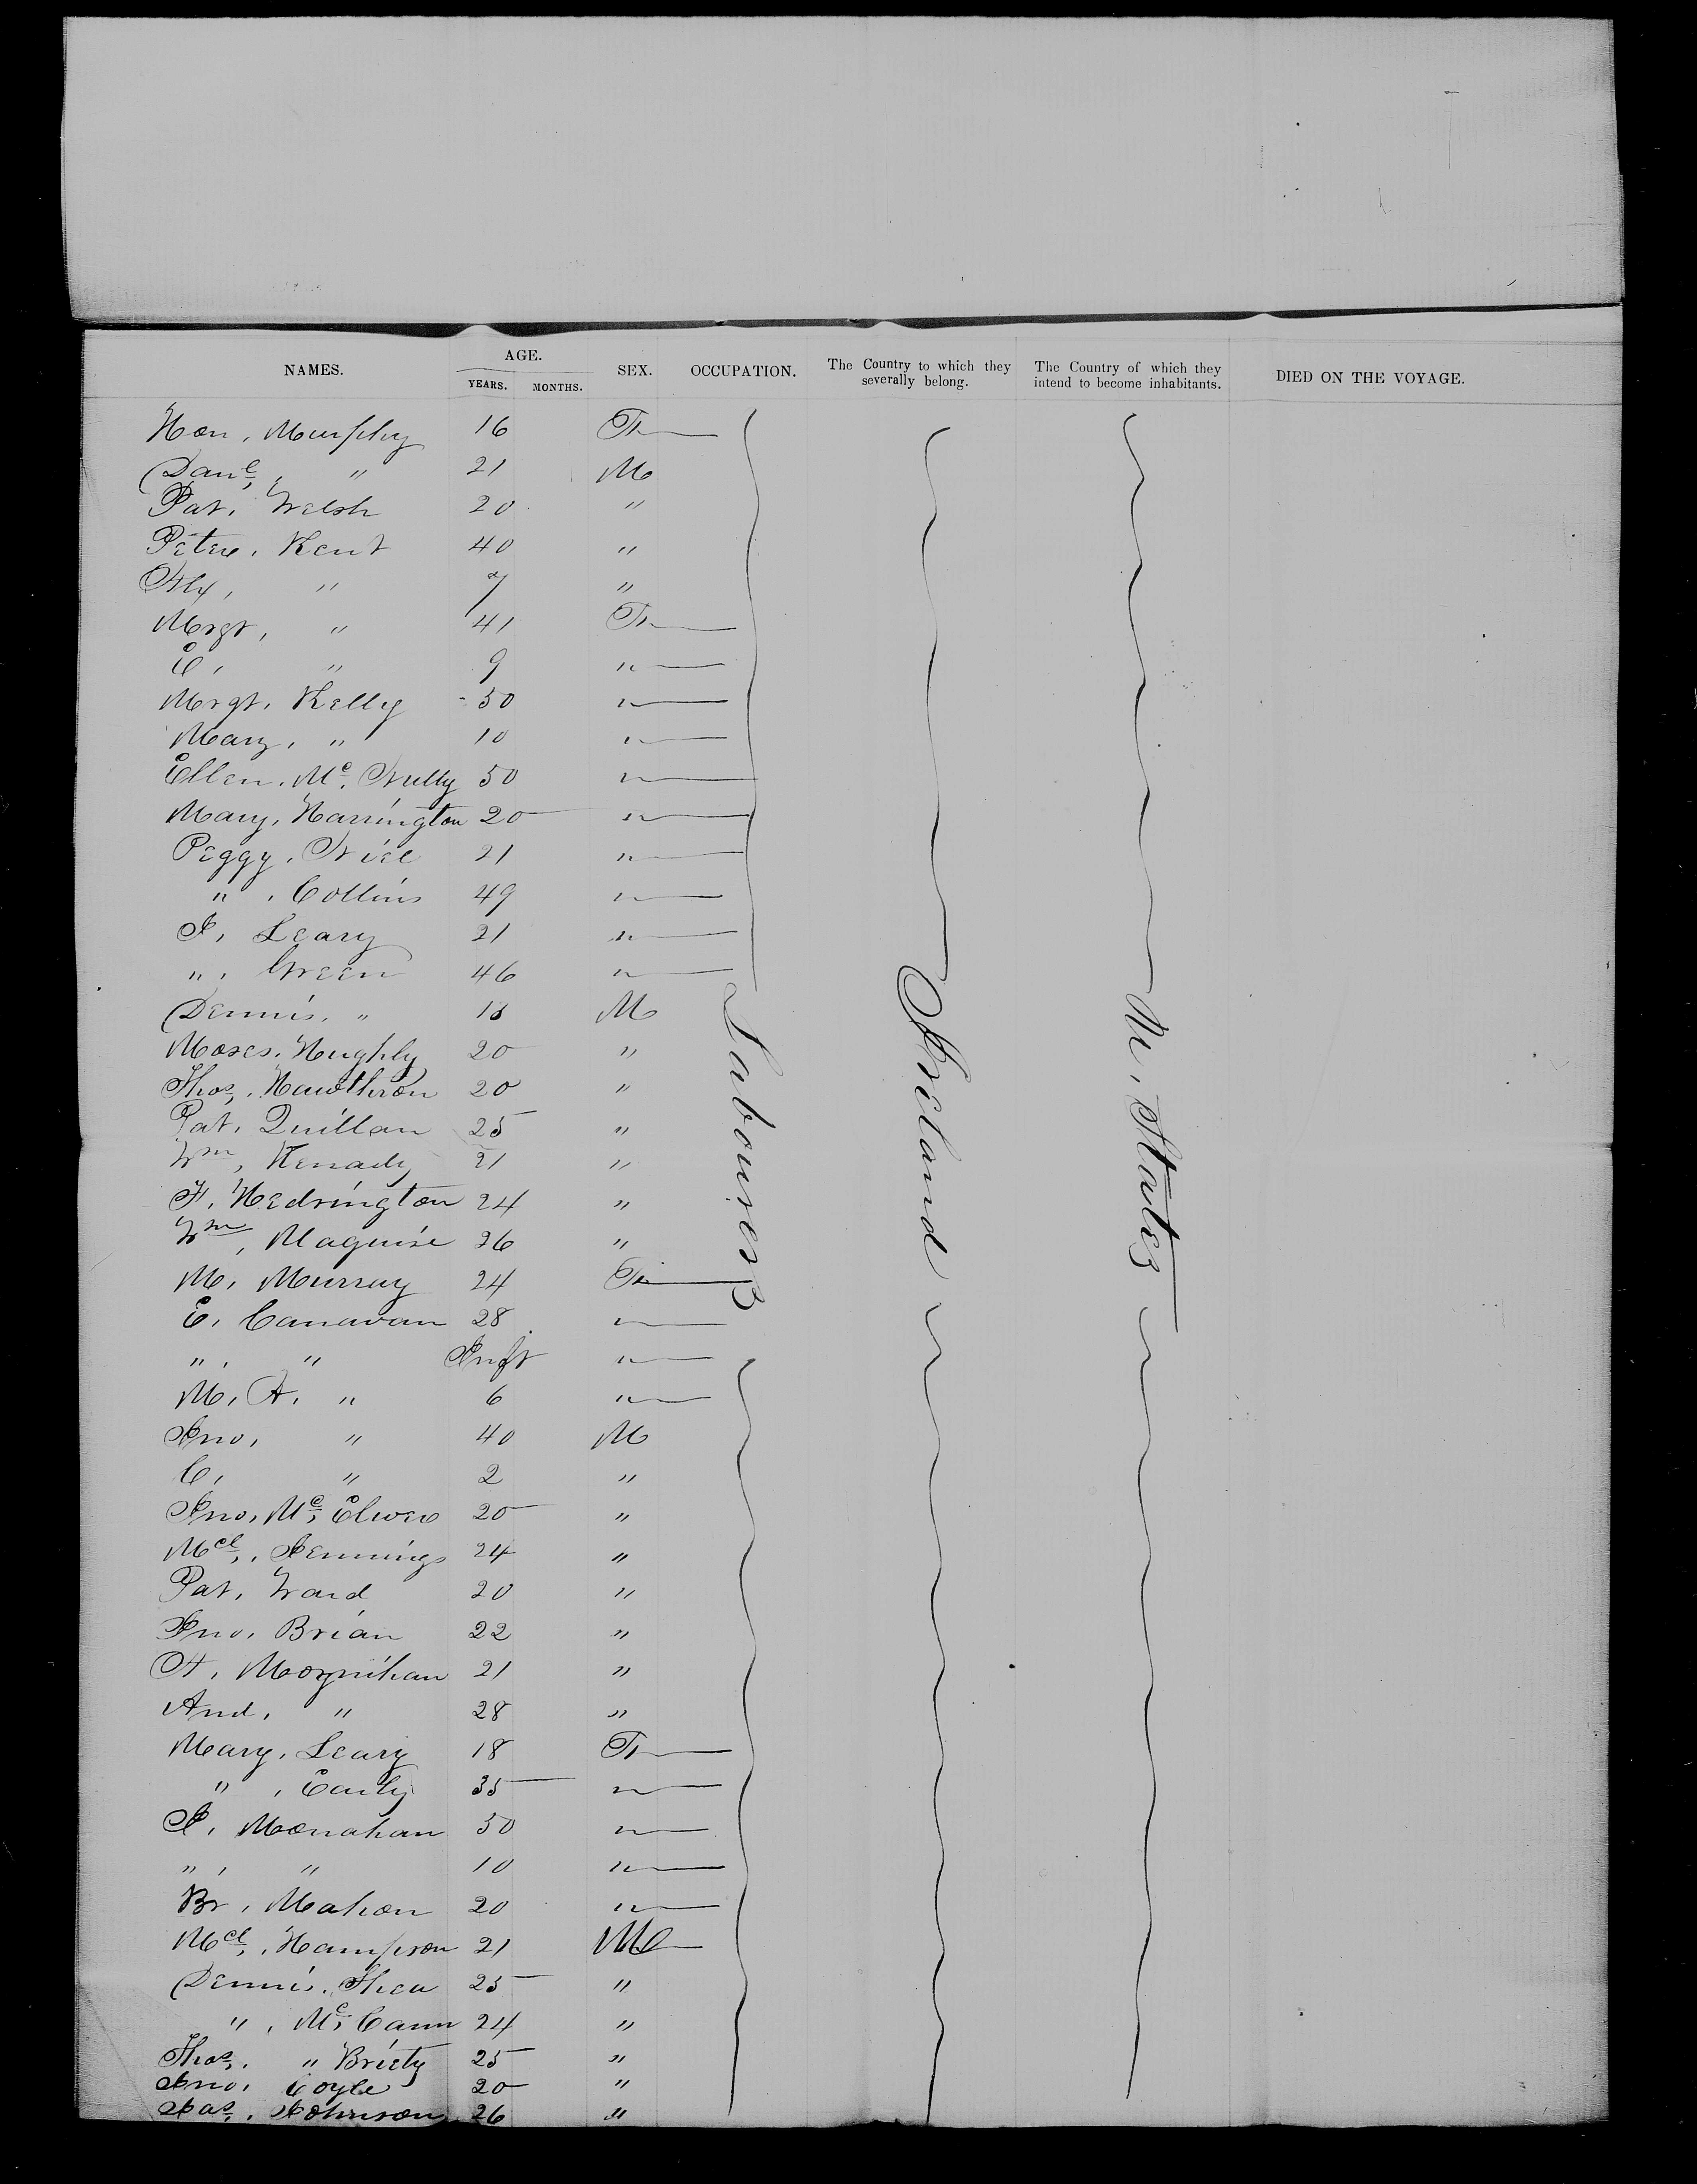 NAMES. AGE. YEARS. MONTHS. SEX. OCCUPATION. The Country to which they severally belong. The Country of which they intend to become inhabitants. DIED ON THE VOYAGE.
Hon, Murphy 16 F
Danl, " 21 M
Pat, Welsh 20 "
Peter, Kent 40 "
Aly, " 7 "
Mrgt, " 41 F
E, " 9 "
Mrgt, Kelly 50 "
Mary, " 10 "
Ellen, Mc. Nully 50 "
Mary, Harrington 20 "
Peggy, Niel 21 "
" , Collins 49 "
J, Leary 21 "
" , Green 46 "
Dennis, " 13 M
Moses, Hughly 20 "
Thos, Hawthron 20 "
Pat, Quillan 25 "
Wm, Kenady 21 "
F, Hedrington 24 "
Wm, Maguire 26 "
M, Murray 24 F
E, Canavan 28 "
" , " Inft "
M, A, " 6 "
Jno, " 40 M
C, " 2 "
Jno, Mc, Elwee 20 "
Mcl, Jennings 24 "
Pat, Ward 20 "
Jno, Brian 22 "
A, Moynihan 21 "
And, " 28 "
Mary, Leary 18 F
" , Early 35 "
J, Monahan 50 "
" , " 10 "
Br, Mahon 20 "
Mcl, Hampson 21 M
Dennis, Shea 25 "
" , Mc, Cann 24 "
Thos, " Briety 25 "
Jno, Coyle 20 "
Jas, Johnson 26 "
Labourers
Ireland
U, States